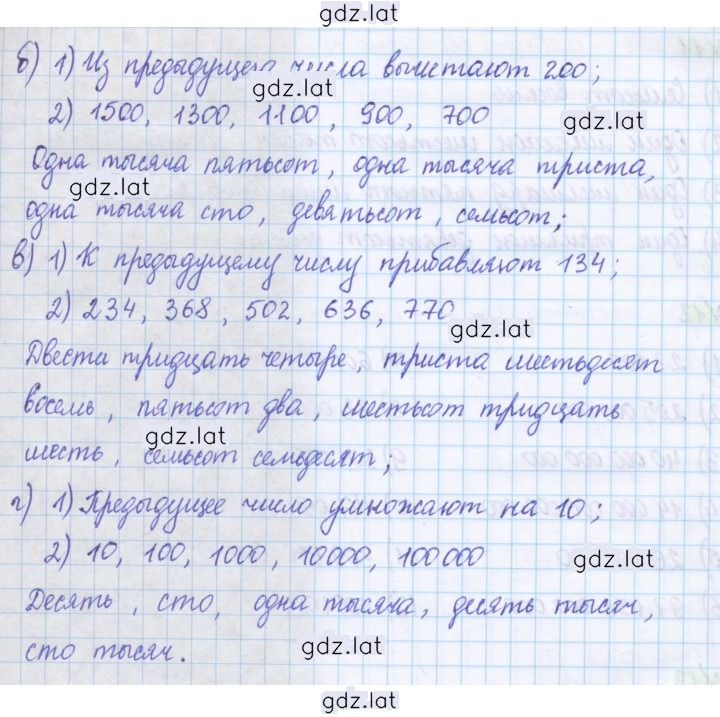 gdz.lat
б) 1) Из предыдущего числа вычитают 200;
gdz.lat
2) 1500, 1300, 1100, 900, 700
gdz.lat
Одна тысяча пятьсот, одна тысяча триста,
gdz.lat
одна тысяча сто, девятьсот, семьсот;
в) 1) К предыдущему числу прибавляют 134;
2) 234, 368, 502, 636, 770
gdz.lat
Двести тридцать четыре, триста шестьдесят
восемь, пятьсот два, шестьсот тридцать
gdz.lat
шесть, семьсот семьдесят;
г) 1) Предыдущее число умножают на 10;
2) 10, 100, 1000, 10000, 100000
gdz.lat
Десять, сто, одна тысяча, десять тысяч,
сто тысяч.
gdz.lat
gdz.lat